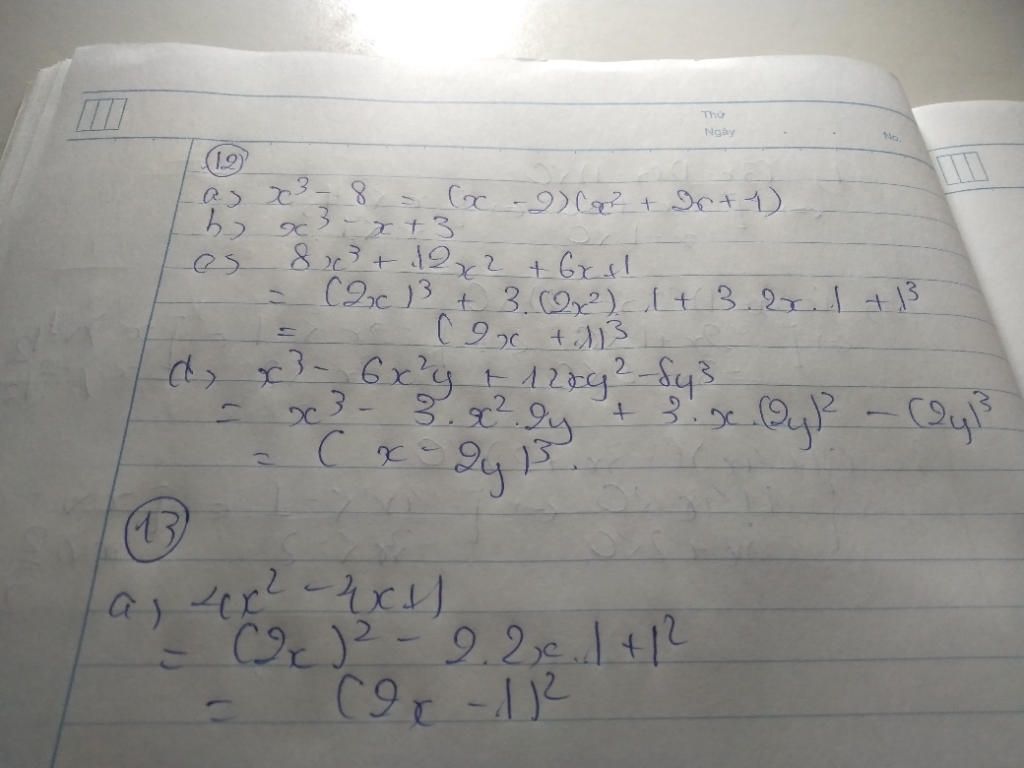 Thứ
Ngày . . No.
12
a) x³ - 8 = (x - 2)(x² + 2x + 1)
b) x³ - x + 3
c) 8x³ + 12x² + 6x+1
= (2x)³ + 3.(2x²).1 + 3.2x.1 + 1³
= (2x + 1)³
d) x³ - 6x²y + 12xy² - 8y³
= x³ - 3.x².2y + 3.x.(2y)² - (2y)³
= (x - 2y)³.
13
a) 4x² - 4x+1
= (2x)² - 2.2x.1 + 1²
= (2x - 1)²